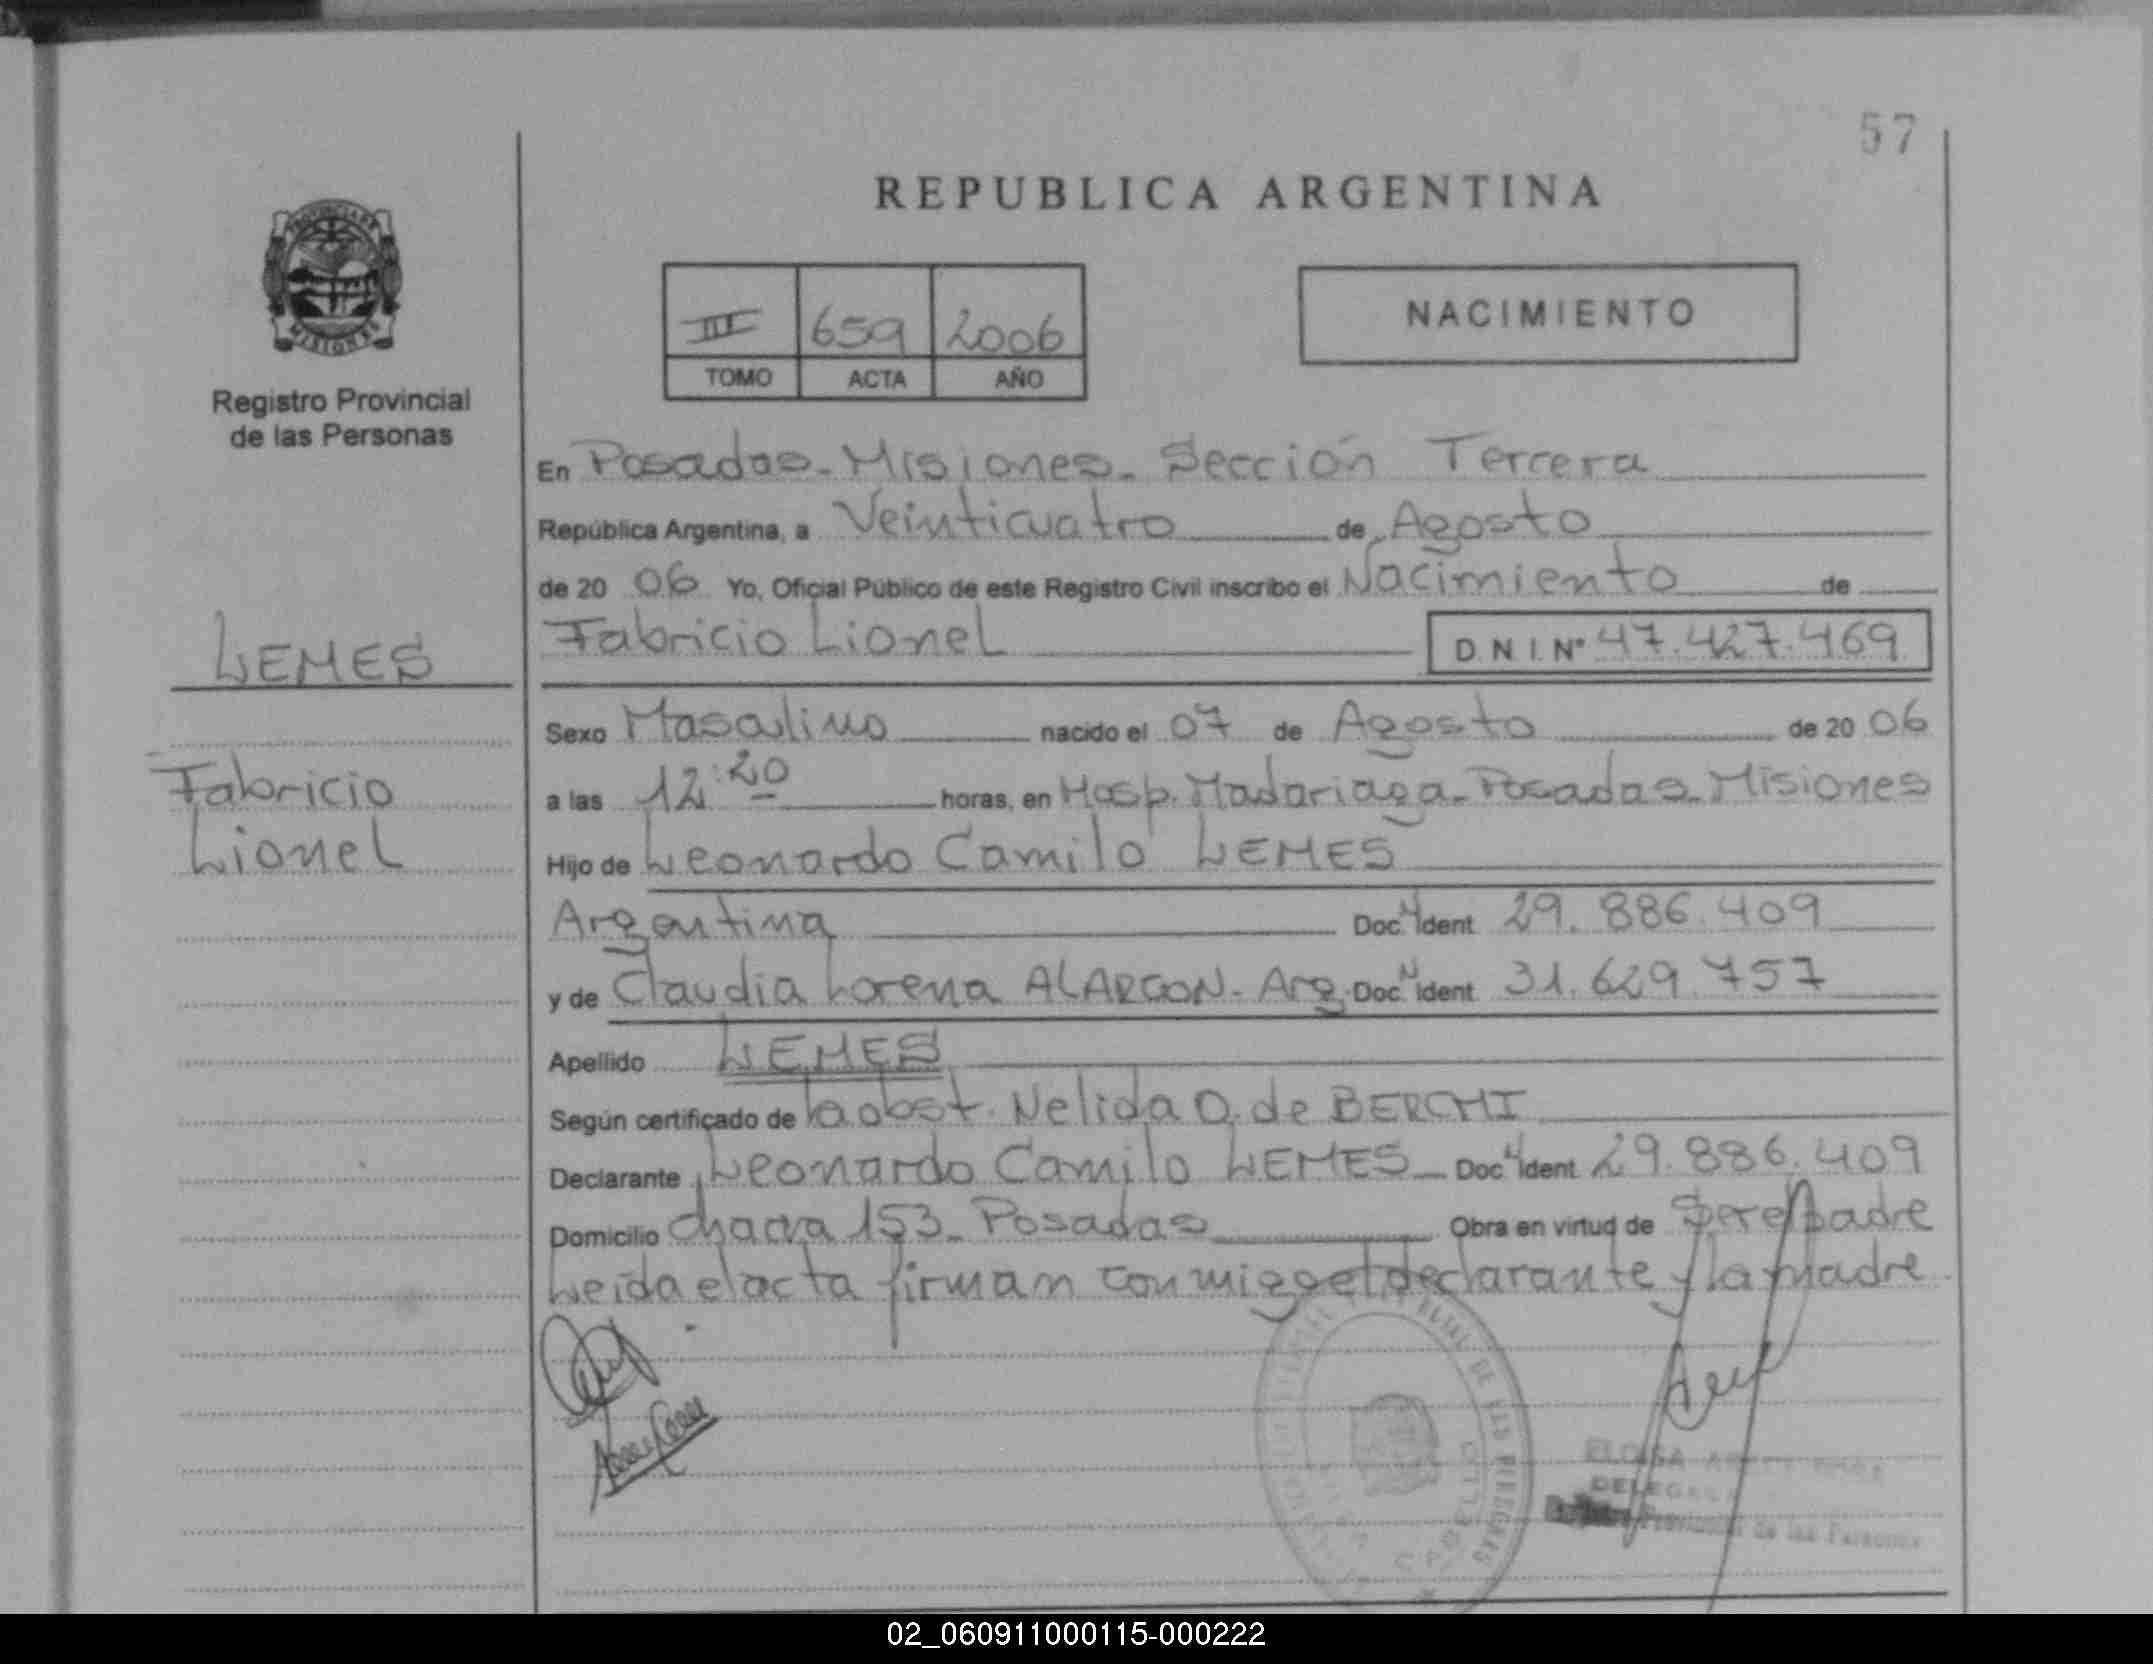 57
REPUBLICA ARGENTINA
PROVINCIA DE
MISIONES
Registro Provincial
de las Personas
III 659 2006
TOMO ACTA AÑO
NACIMIENTO
En Posadas - Misiones - Sección Tercera
República Argentina, a Veinticuatro de Agosto
de 20 06 Yo, Oficial Público de este Registro Civil inscribo el Nacimiento de
LEMES
Fabricio Lionel D.N.I.Nº 47.427.469
Sexo Masculino nacido el 07 de Agosto de 20 06
Fabricio
Lionel
a las 12:20 horas, en Hosp. Madariaga - Posadas - Misiones
Hijo de Leonardo Camilo LEMES
Argentina Doc. N Ident 29.886.409
y de Claudia Lorena ALARCON - Arg. Doc. N Ident 31.629.757
Apellido LEMES
Según certificado de la obst. Nelida O. de BERCHI
Declarante Leonardo Camilo LEMES - Doc. N Ident 29.886.409
Domicilio Chacra 153 - Posadas Obra en virtud de Ser el padre
Leida el acta firman conmigo el declarante y la madre
ELOISA
DELEGADA
Provincial de las Personas
02_060911000115-000222